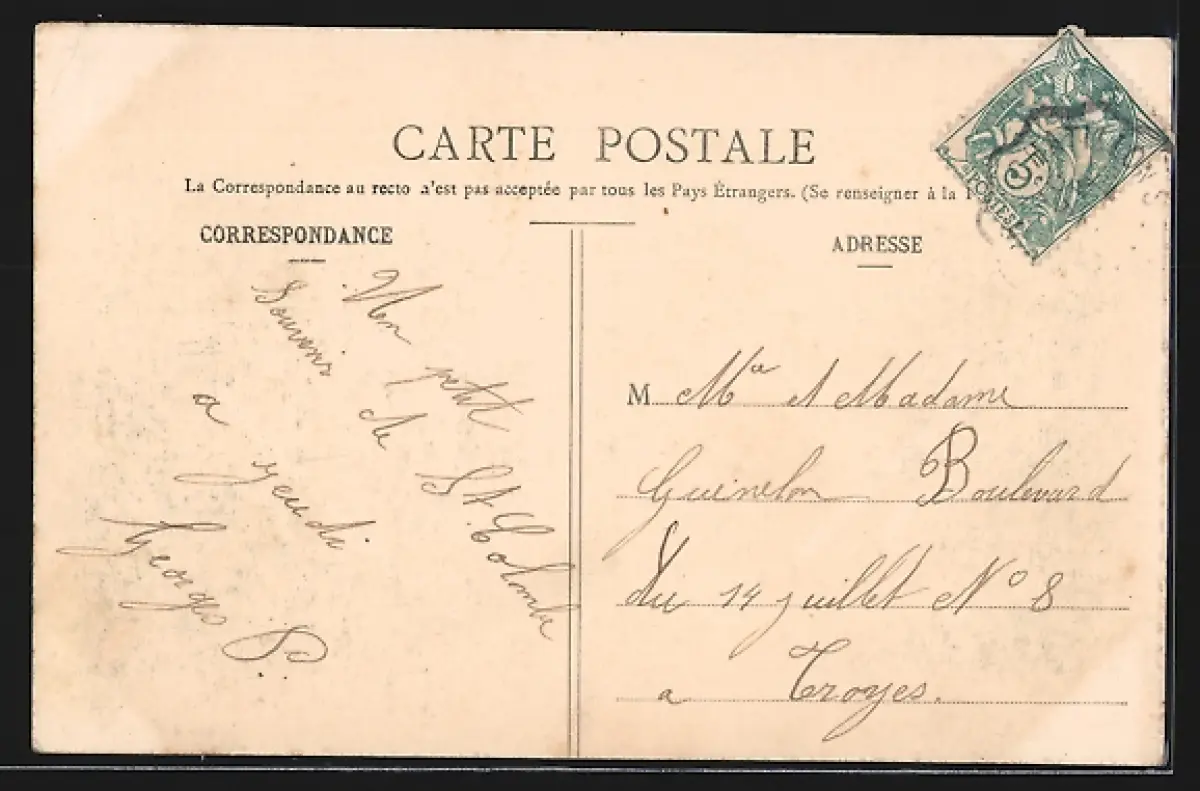 CARTE POSTALE
La Correspondance au recto n'est pas acceptée par tous les Pays Étrangers. (Se renseigner à la
CORRESPONDANCE
ADRESSE
petit
Souvenir de St. Colombe
a jeudi
Georges P.
M Mr et Madame
Guinelon Boulevard
du 14 juillet No 8
a Troyes.
5c
POSTES